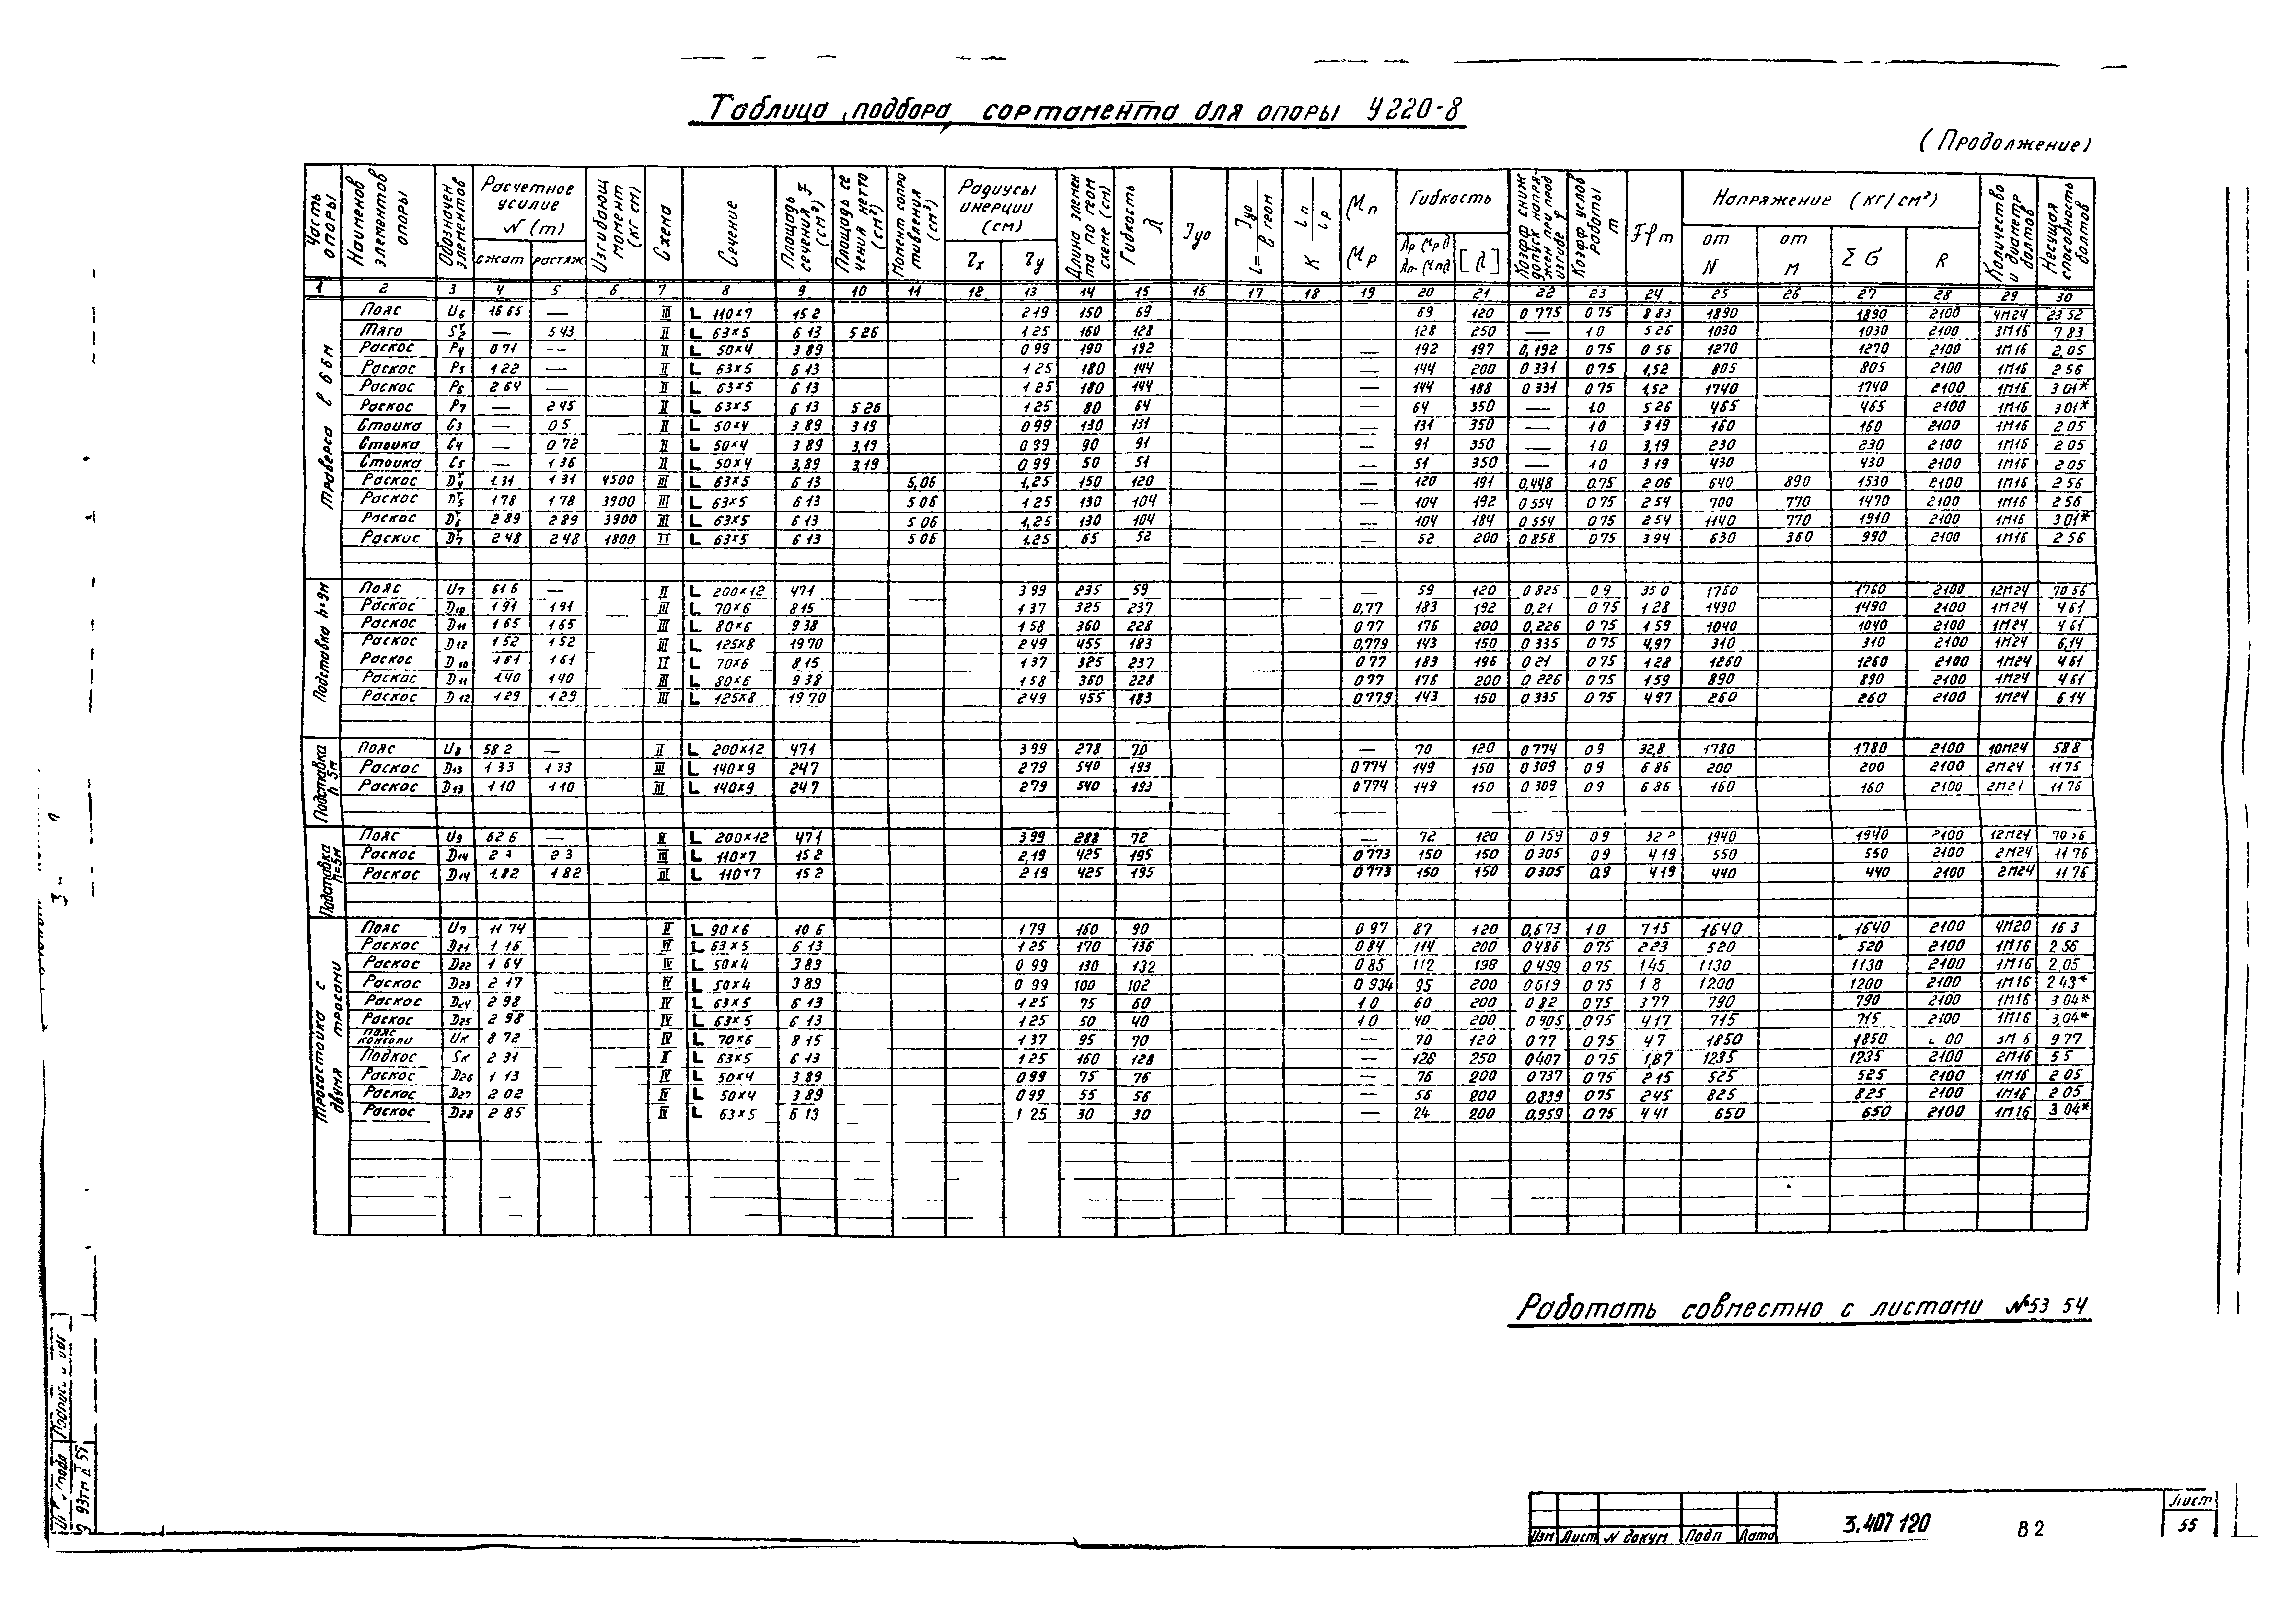 Таблица подбора сортамента для опоры У220-8
(Продолжение)
Часть опоры | Наименов элементов опоры | Обозначен элементов | Расчетное усилие N (т) | Изгибающ момент (кг см) | Схема | Сечение | Площадь сечения F (см²) | Площадь се чения нетто (см²) | Момент сопро тивления (см³) | Радиусы инерции (см) | Длина элемен та по геом схеме (см) | Гибкость λ | Jуо | K | Mп Mр | Гибкость | Коэфф сниж допуск напря- жен при прод изгибе φ | Коэфф услов работы m | Fφm | Напряжение (кг/см²) | Количество и диаметр болтов | Несущая способность болтов
сжат | растяж | rx | ry | [λ] | от N | от M | Σσ | R
1 2 3 4 5 6 7 8 9 10 11 12 13 14 15 16 17 18 19 20 21 22 23 24 25 26 27 28 29 30
Траверса ℓ 6 6м
Пояс U6 16 65 — III L 110×7 15 2 2 19 150 69 69 120 0 775 0 75 8 83 1890 1890 2100 4М24 23 52
Тяга — 5 43 II L 63×5 6 13 5 26 1 25 160 128 128 250 — 1 0 5 26 1030 1030 2100 3М16 7 83
Раскос P4 0 71 — II L 50×4 3 89 0 99 190 192 — 192 197 0,192 0 75 0 56 1270 1270 2100 1М16 2,05
Раскос P5 1 22 — II L 63×5 6 13 1 25 180 144 — 144 200 0 331 0 75 1,52 805 805 2100 1М16 2 56
Раскос P6 2 64 — II L 63×5 6 13 1 25 180 144 — 144 188 0 331 0 75 1,52 1740 1740 2100 1М16 3 01*
Раскос P7 — 2 45 II L 63×5 6 13 5 26 1 25 80 64 — 64 350 — 1.0 5 26 465 465 2100 1М16 3 01*
Стоика C3 — 0 5 II L 50×4 3 89 3 19 0 99 130 131 — 131 350 — 1 0 3 19 160 160 2100 1М16 2 05
Стоика C4 — 0 72 II L 50×4 3 89 3,19 0 99 90 91 — 91 350 — 1 0 3,19 230 230 2100 1М16 2 05
Стоика C5 — 1 36 II L 50×4 3,89 3,19 0 99 50 51 — 51 350 — 1 0 3 19 430 430 2100 1М16 2 05
Раскос 1.31 1 31 4500 III L 63×5 6 13 5,06 1,25 150 120 — 120 191 0,448 0.75 2 06 640 890 1530 2100 1М16 2 56
Раскос 1 78 1 78 3900 III L 63×5 6 13 5 06 1 25 130 104 — 104 192 0 554 0 75 2 54 700 770 1470 2100 1М16 2 56
Раскос 2 89 2 89 3900 III L 63×5 6 13 5 06 1,25 130 104 — 104 184 0 554 0 75 2 54 1140 770 1910 2100 1М16 3 01*
Раскос 2 48 2 48 1800 II L 63×5 6 13 5 06 1,25 65 52 — 52 200 0 858 0 75 3 94 630 360 990 2100 1М16 2 56
Подставка h=9м
Пояс U7 61 6 — II L 200×12 47 1 3 99 235 59 — 59 120 0 825 0 9 35 0 1760 1760 2100 12М24 70 56
Раскос D10 1 91 1 91 III L 70×6 8 15 1 37 325 237 0,77 183 192 0,21 0 75 1 28 1490 1490 2100 1М24 4 61
Раскос D11 1 65 1 65 III L 80×6 9 38 1 58 360 228 0 77 176 200 0,226 0 75 1 59 1040 1040 2100 1М24 4 61
Раскос D12 1 52 1 52 III L 125×8 19 70 2 49 455 183 0,779 143 150 0 335 0 75 4,97 310 310 2100 1М24 6,14
Раскос D10 1 61 1 61 II L 70×6 8 15 1 37 325 237 0 77 183 196 0 21 0 75 1 28 1260 1260 2100 1М24 4 61
Раскос D11 1.40 1 40 III L 80×6 9 38 1 58 360 228 0 77 176 200 0 226 0 75 1 59 890 890 2100 1М24 4 61
Раскос D12 1 29 1 29 III L 125×8 19 70 2 49 455 183 0 779 143 150 0 335 0 75 4 97 260 260 2100 1М24 6 14
Подставка h 5м
Пояс U8 58 2 — II L 200×12 47 1 3 99 278 70 — 70 120 0 774 0 9 32,8 1780 1780 2100 10М24 58 8
Раскос D13 1 33 1 33 III L 140×9 24 7 2 79 540 193 0 774 149 150 0 309 0 9 6 86 200 200 2100 2М24 11 75
Раскос D13 1 10 1 10 III L 140×9 24 7 2 79 540 193 0 774 149 150 0 309 0 9 6 86 160 160 2100 11 76
Подставка h=5м
Пояс U9 62 6 — II L 200×12 47 1 3 99 288 72 — 72 120 0 759 0 9 1940 1940 2100 12М24
Раскос D14 2 3 III L 110×7 15 2 2,19 425 195 0 773 150 150 0 305 0 9 4 19 550 550 2100 2М24 11 76
Раскос D14 1 82 1 82 III L 110×7 15 2 2 19 425 195 0 773 150 150 0 305 0.9 4 19 440 440 2100 2М24 11 76
Тросостоика с двумя тросами
Пояс U7 11 74 II L 90×6 10 6 1 79 160 90 0 97 87 120 0,673 1 0 7 15 1640 1640 2100 4М20 16 3
Раскос D21 1 16 IV L 63×5 6 13 1 25 170 136 0 84 114 200 0 486 0 75 2 23 520 520 2100 1М16 2 56
Раскос D22 1 64 IV L 50×4 3 89 0 99 130 132 0 85 112 198 0 499 0 75 1 45 1130 1130 2100 1М16 2,05
Раскос D23 2 17 IV L 50×4 3 89 0 99 100 102 0 934 95 200 0 619 0 75 1 8 1200 1200 2100 1М16 2 43*
Раскос D24 2 98 IV L 63×5 6 13 1 25 75 60 1 0 60 200 0 82 0 75 3 77 790 790 2100 1М16 3 04*
Раскос D25 2 98 IV L 63×5 6 13 1 25 50 40 1 0 40 200 0 905 0 75 4 17 715 715 2100 1М16 3,04*
Пояс консоли Uк 8 72 IV L 70×6 8 15 1 37 95 70 — 70 120 0 77 0 75 4 7 1850 1850 9 77
Подкос Sк 2 31 II L 63×5 6 13 1 25 160 128 — 128 250 0407 0 75 1,87 1235 1235 2100 2М16 5 5
Раскос D26 1 13 IV L 50×4 3 89 0 99 75 76 — 76 200 0 737 0 75 2 15 525 525 2100 1М16 2 05
Раскос D27 2 02 IV L 50×4 3 89 0 99 55 56 — 56 200 0,839 0 75 2 45 825 825 2100 1М16 2 05
Раскос D28 2 85 IV L 63×5 6 13 1 25 30 30 — 24 200 0,959 0 75 4 41 650 650 2100 1М16 3 04*
Работать совместно с листами №53 54
Изм Лист N докум Подп Дата
3.407 120
В 2
Лист
55